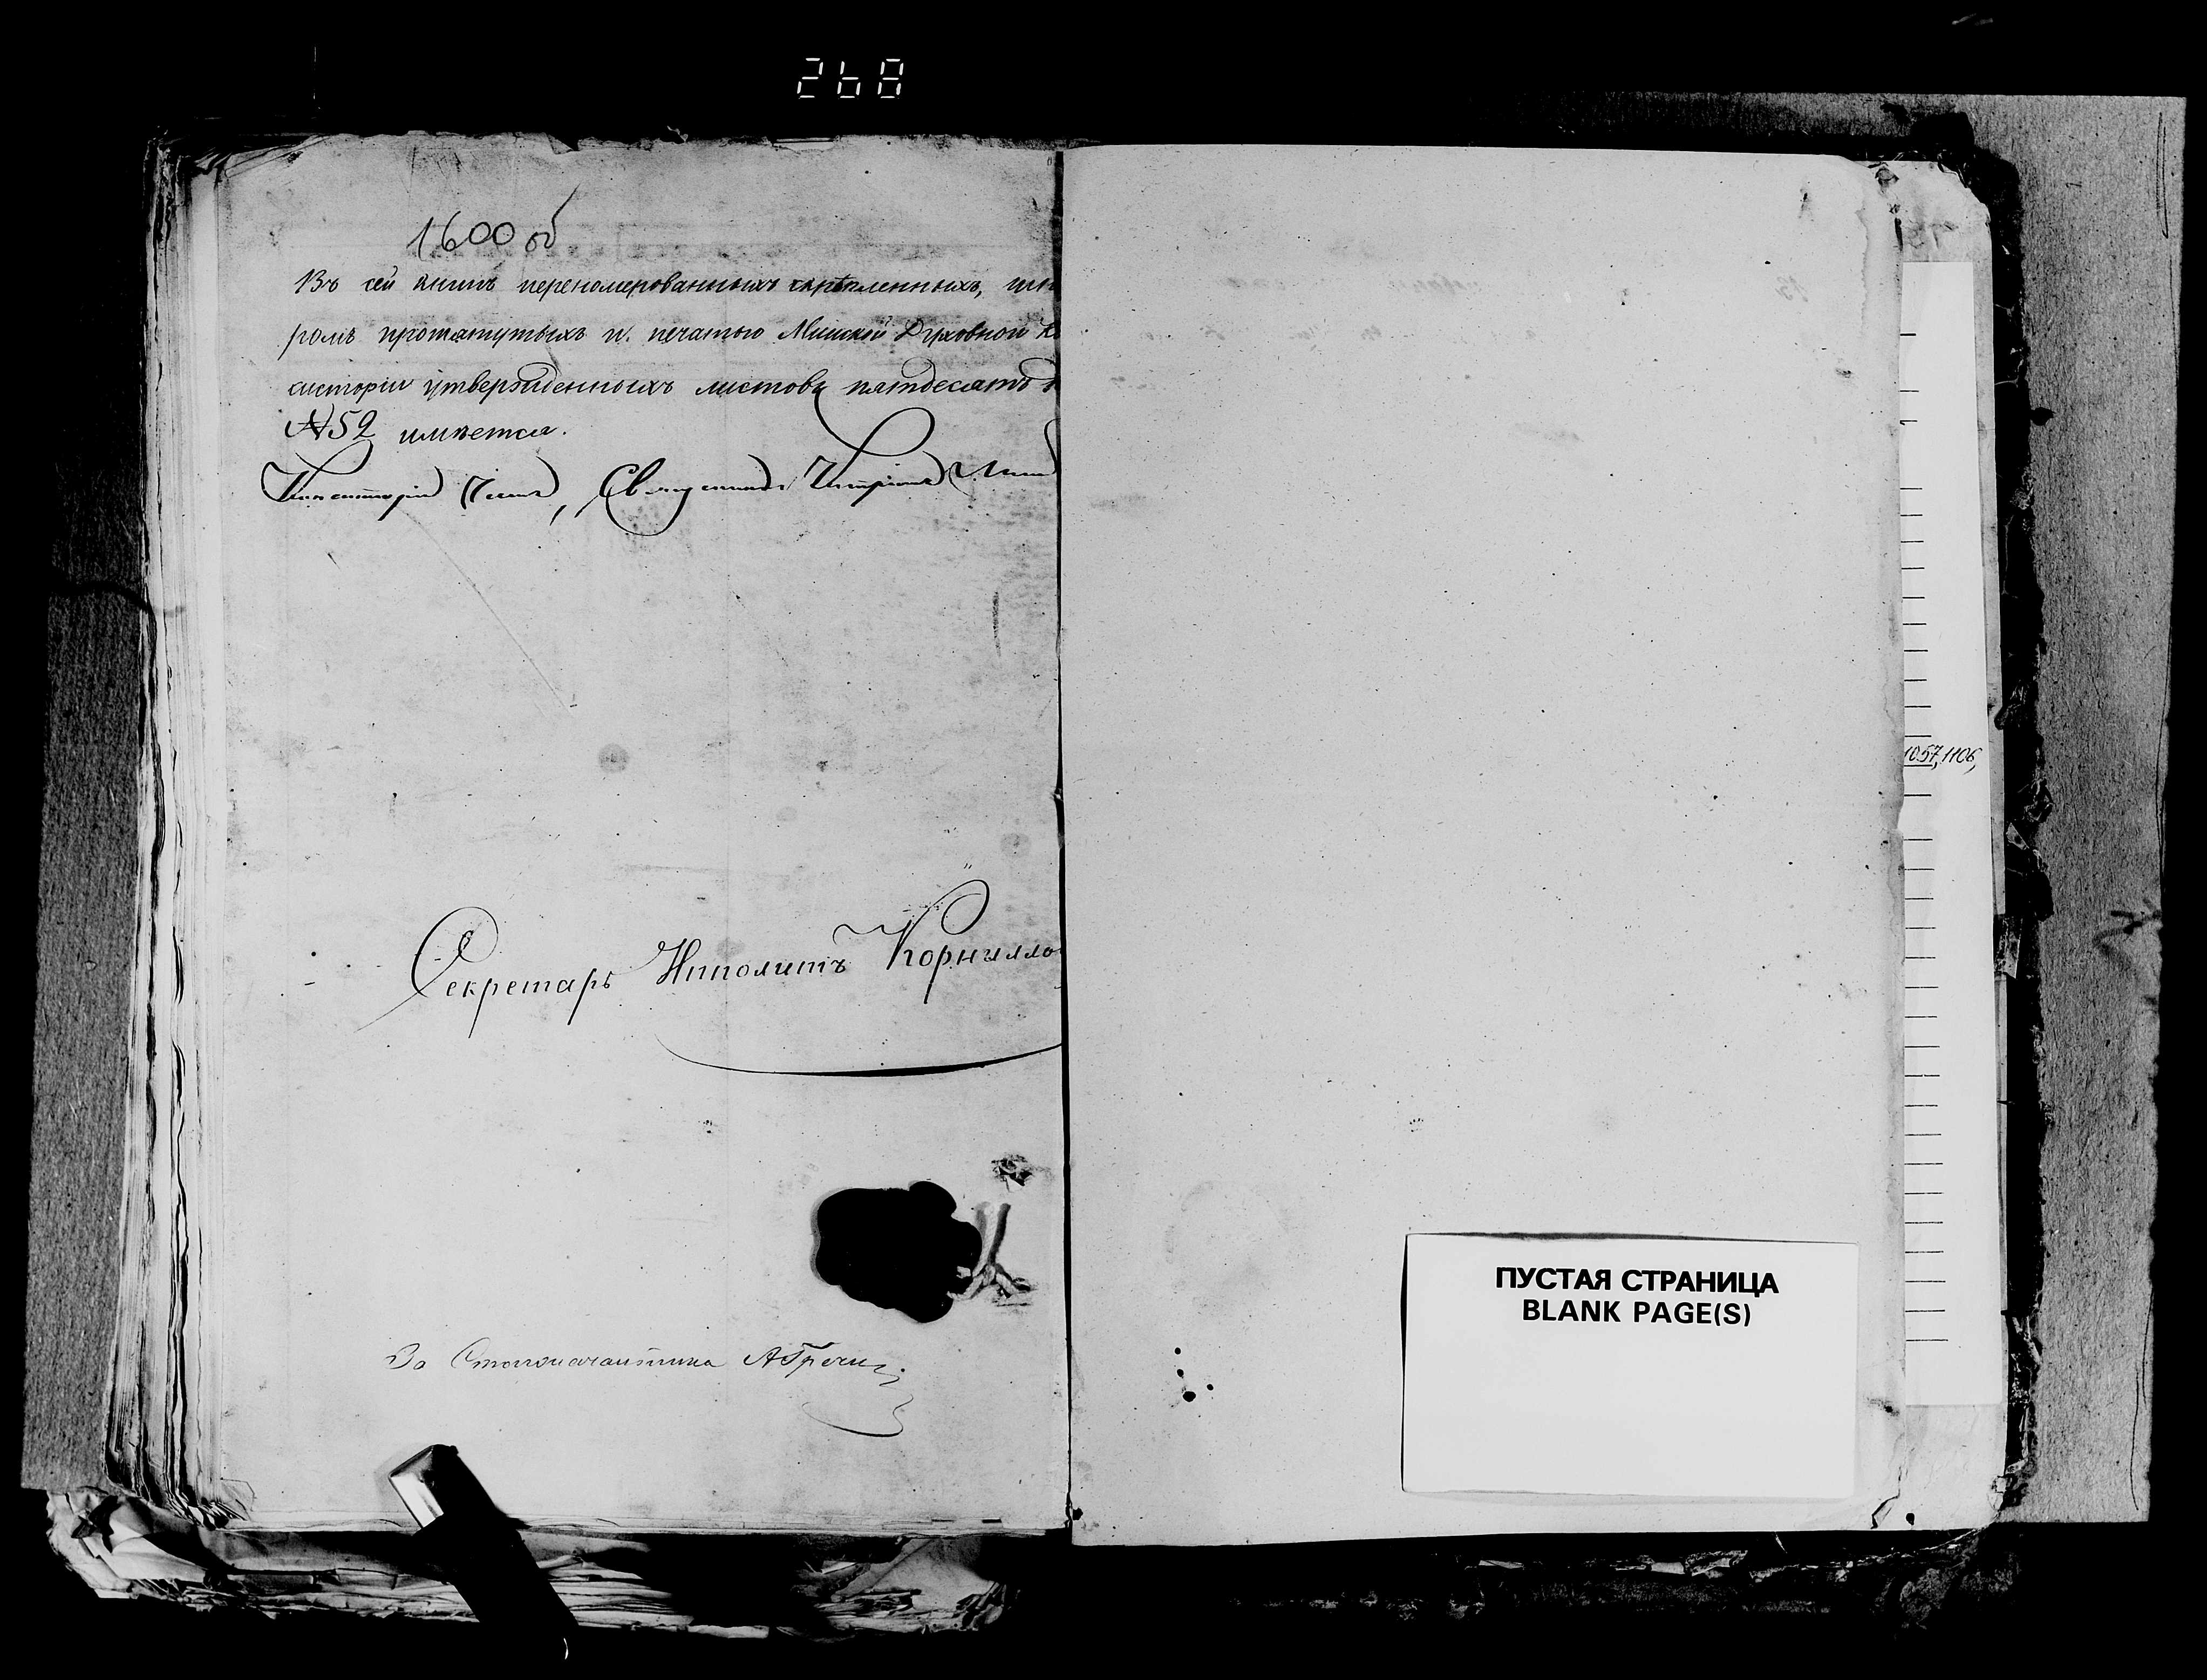 268
1600 об
Въ сей книгѣ переномерованныхъ скрѣпленныхъ, шну
ромъ протянутыхъ и печатью Минской Духовной Ко
систоріи утвержденныхъ листовъ пятдесятъ
№ 52 имѣется.
Консисторіи Членъ, Священникъ
Секретарь Ипполитъ Корнилло
За Столоначальника
1057, 1106,
ПУСТАЯ СТРАНИЦА
BLANK PAGE(S)